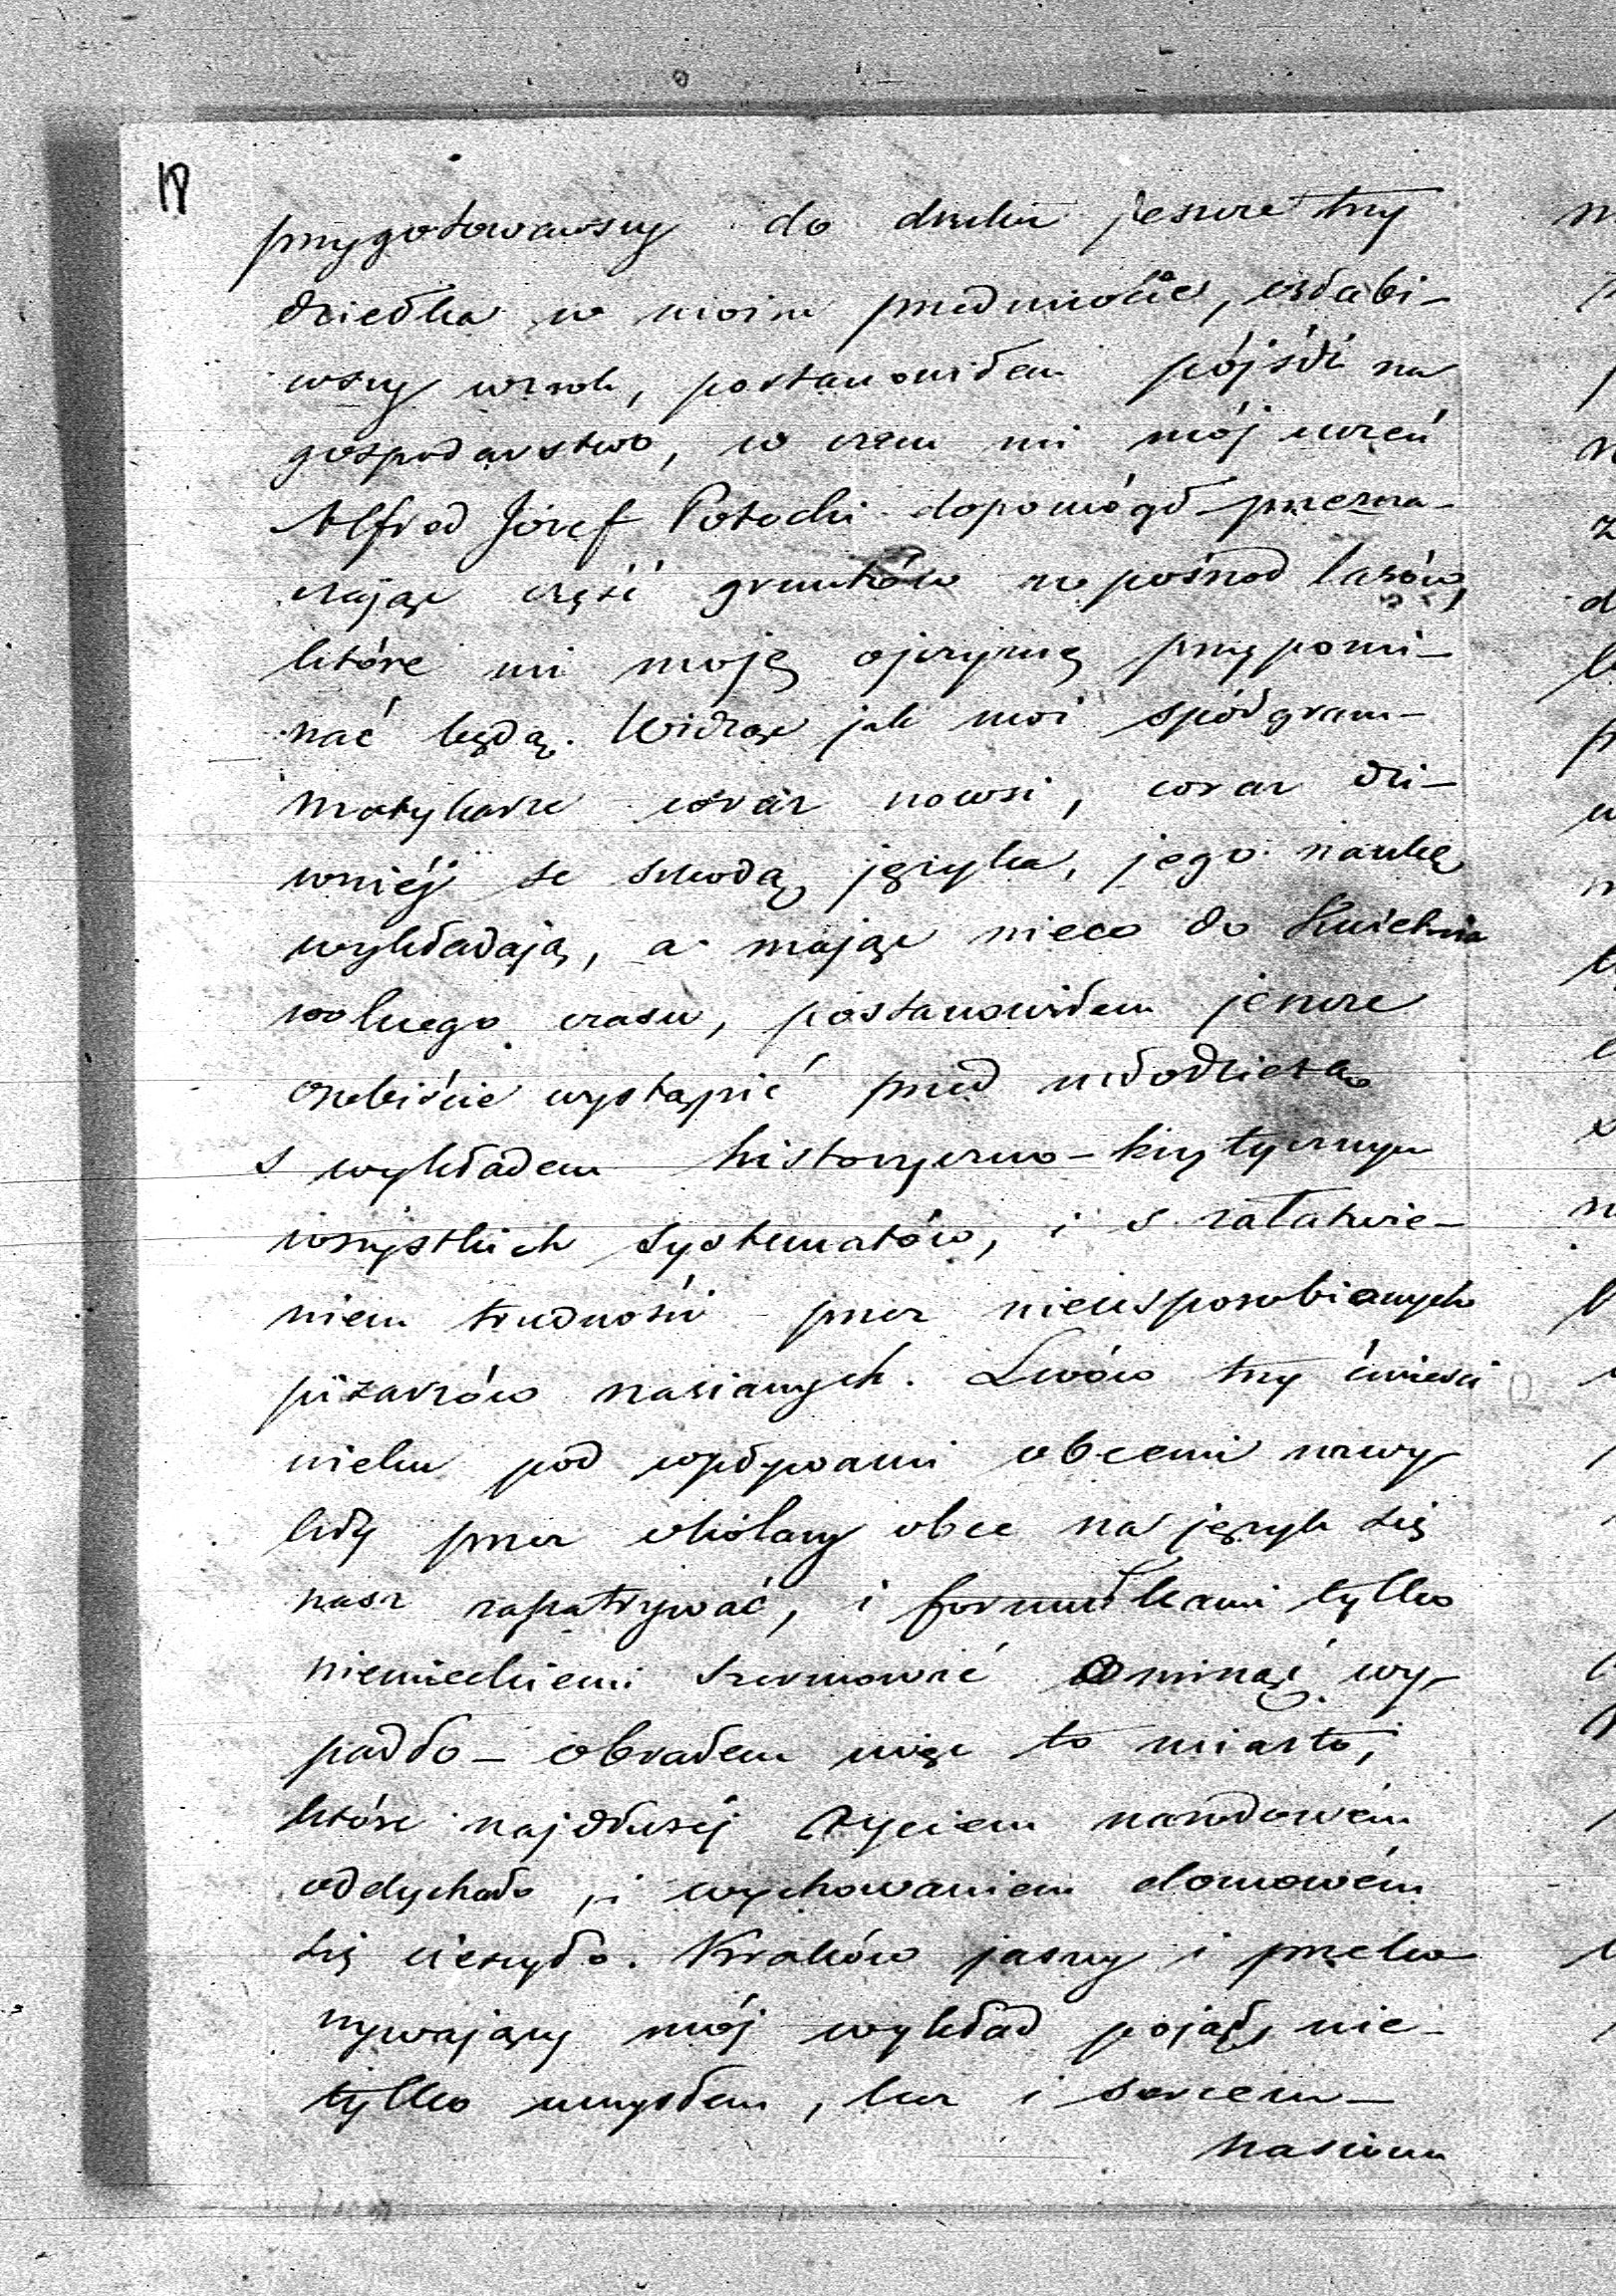 18
przygotowawszy do druku jeszcze trzy
dziełka w moim przedmiocie, osłabi-
wszy wzrok, postanowiłem pójśdź na
gospodarstwo, w czem mi mój uczeń
Alfred Józef Potocki dopomógł przezna-
czając część gruntów w pośród lasów,
które mi moję ojczyznę przypomi-
nać będą. Widząc jak moi spółgram-
matykarze coraz nowsi, coraz dzi-
wniéj ze szkodą języka, jego naukę
wykładają, a mając nieco do Kwietnia
wolnego czasu, postanowiłem jeszcze
osobiście wystąpić przed młodzieżą
s wykładem historyczno-krytycznym
wszystkich systematów, i s załatwie-
niem trudności przez nieusposobionych
pisarzów nasianych. Lwów trzy ćwierci
wieku pod wpływami obcemi nawy-
kły przez okólary obce na język się
nasz zapatrywać, i formułkami tylko
niemieckiemi szermować ominąć wy-
padło - obrałem więc to miasto,
które najdłużéj życiem narodowém
oddychało, i wychowaniem domowém
się cieszyło. Kraków jasny i przeko
nywający mój wykład pojął, nie-
tylko umysłem, lecz i sercem -